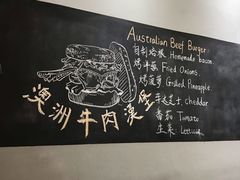 Australian Beef Burger:
自制培根 Homemade bacon.
烤洋葱 Fried Onions.
烤菠萝 Grilled Pineapple.
车达芝士 cheddar
番茄 Tomato
生菜 Lettuce
澳洲牛肉漢堡